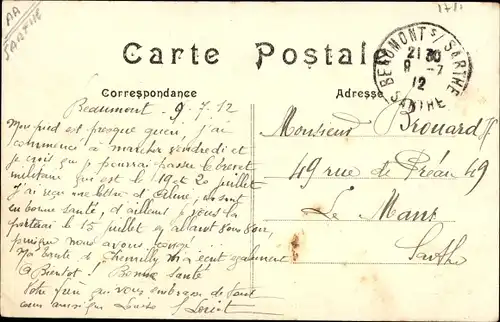 AA
SARTHE
Carte Postale
BEAUMONT S/ SARTHE
21 30
8 -7
12
SARTHE
Correspondance
Adresse
Beaumont 9-7-12
Mon pied est presque guéri, j'ai
commencé à marcher vendredi et
je crois que je pourrai passer le brevet
militaire qui est le 19 et 20 juillet
J'ai reçu une lettre d' ils sont
en bonne santé, d'ailleurs je vous la
porterai le 15 juillet en allant
puisque nous avons
Ma tante de m'a écrit également
à Bientôt ! Bonne Santé
Votre qui vous embrasse de tout
Monsieur Brouard
49 rue de Préau 49
Le Mans
Sarthe